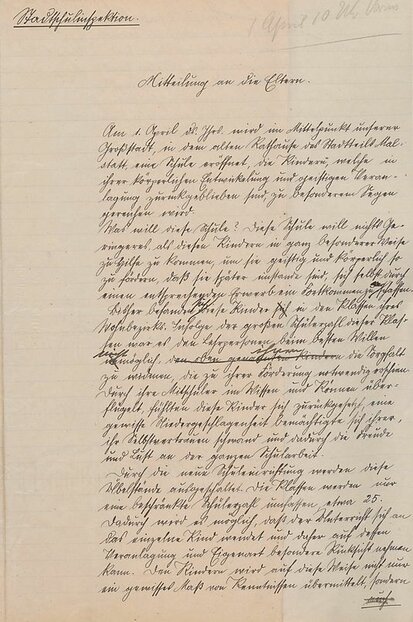 Stadtschulinspektion.
1 April 10 Uhr Vorm
Mitteilung an die Eltern.
Am 1. April ds. Jhrs. wird im Mittelpunkt unserer
Großstadt, in dem alten Rathause des Stadtteils Mal-
statt, eine Schule eröffnet, die Kindern, welche in
ihrer körperlichen Entwickelung und geistigen Veran-
lagung zurückgeblieben sind, zu besonderem Segen
gereichen wird.
Was will diese Schule? Diese Schule will nichts Ge-
ringeres als diesen Kindern in ganz besonderer Weise
zu Hilfe zu kommen, um sie geistig und körperlich so
zu fördern, daß sie später imstande sind, sich selbst durch
einen entsprechenden Erwerb ein Fortkommen zu schaffen.
Bisher befanden sich diese Kinder in den Klassen ihres
Wohnbezirks. Infolge der großen Schülerzahl dieser Klas-
sen war es den Lehrpersonen beim besten Willen
nicht möglich, den oben genannten Kindern ihnen die Sorgfalt
zu widmen, die zu ihrer Förderung notwendig erschien.
Durch ihre Mitschüler im Wissen und Können über-
flügelt, fühlten diese Kinder sich zurückgesetzt, eine
gewisse Niedergeschlagenheit bemächtigte sich ihrer,
ihr Selbstvertrauen schwand und dadurch die Freude
und Lust an der ganzen Schularbeit.
Durch die neue Schuleinrichtung werden diese
Übelstände ausgeschaltet. Die Klassen werden nur
eine beschränkte Schülerzahl umfassen, etwa 25.
Dadurch wird es möglich, daß der Unterricht sich an
das einzelne Kind wendet und daher auf dessen
Veranlagung und Eigenart besondere Rücksicht nehmen
kann. Den Kindern wird auf diese Weise nicht nur
ein gewisses Maß von Kenntnissen übermittelt, sondern
auch